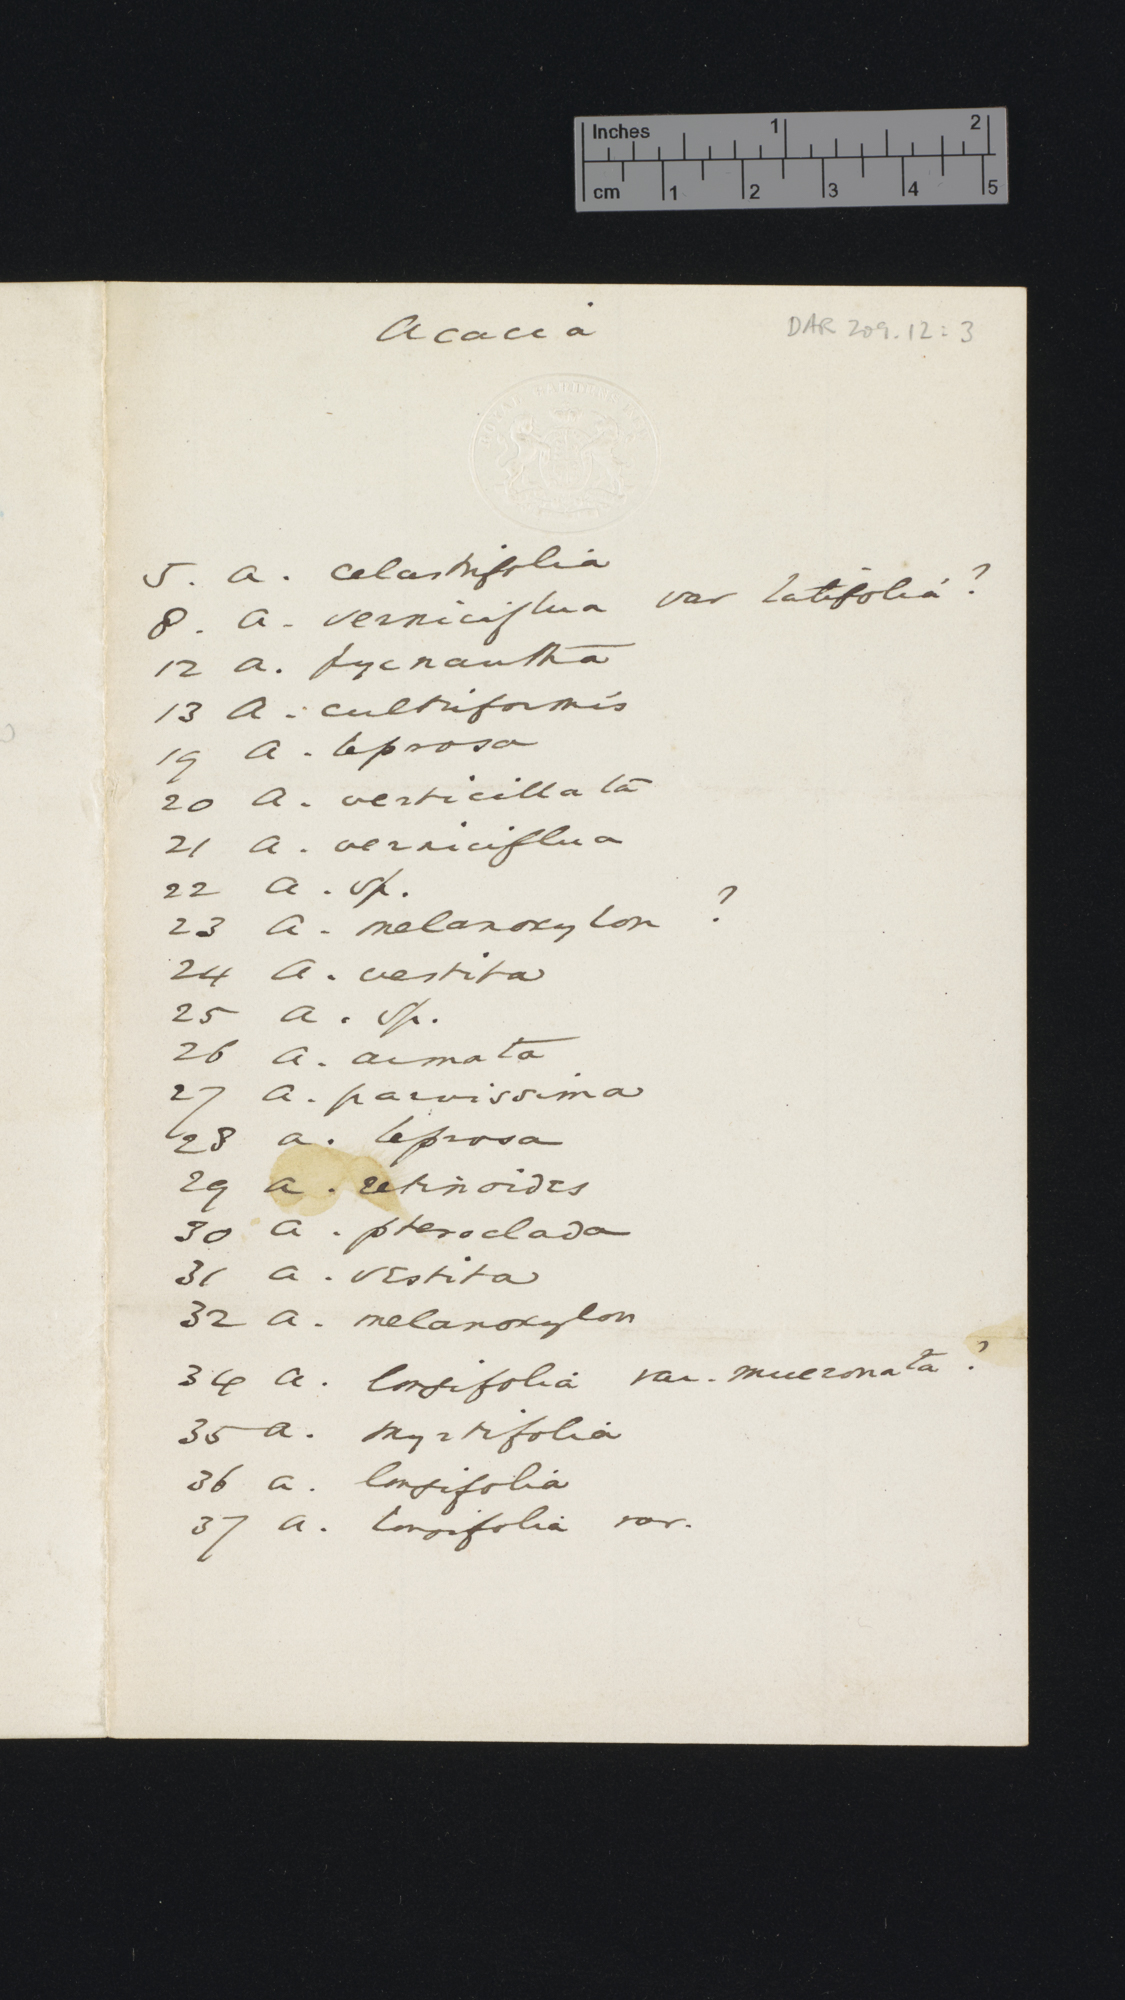 Inches 1 2
cm 1 2 3 4 5
Acacia
DAR 209.12:3
5. A. celastrifolia
8. A. verniciflua var latifolia?
12 A. pycnantha
13 A. cultriformis
19 A. leprosa
20 A. verticillata
21 A. verniciflua
22 A. sp.
23 A. melanoxylon ?
24 A. vestita
25 A. sp.
26 A. armata
27 A. parvissima
28 A. leprosa
29 A. retinoides
30 A. pteroclada
31 A. vestita
32 A. melanoxylon
34 A. longifolia var. mucronata?
35 A. myrtifolia
36 A. longifolia
37 A. longifolia var.